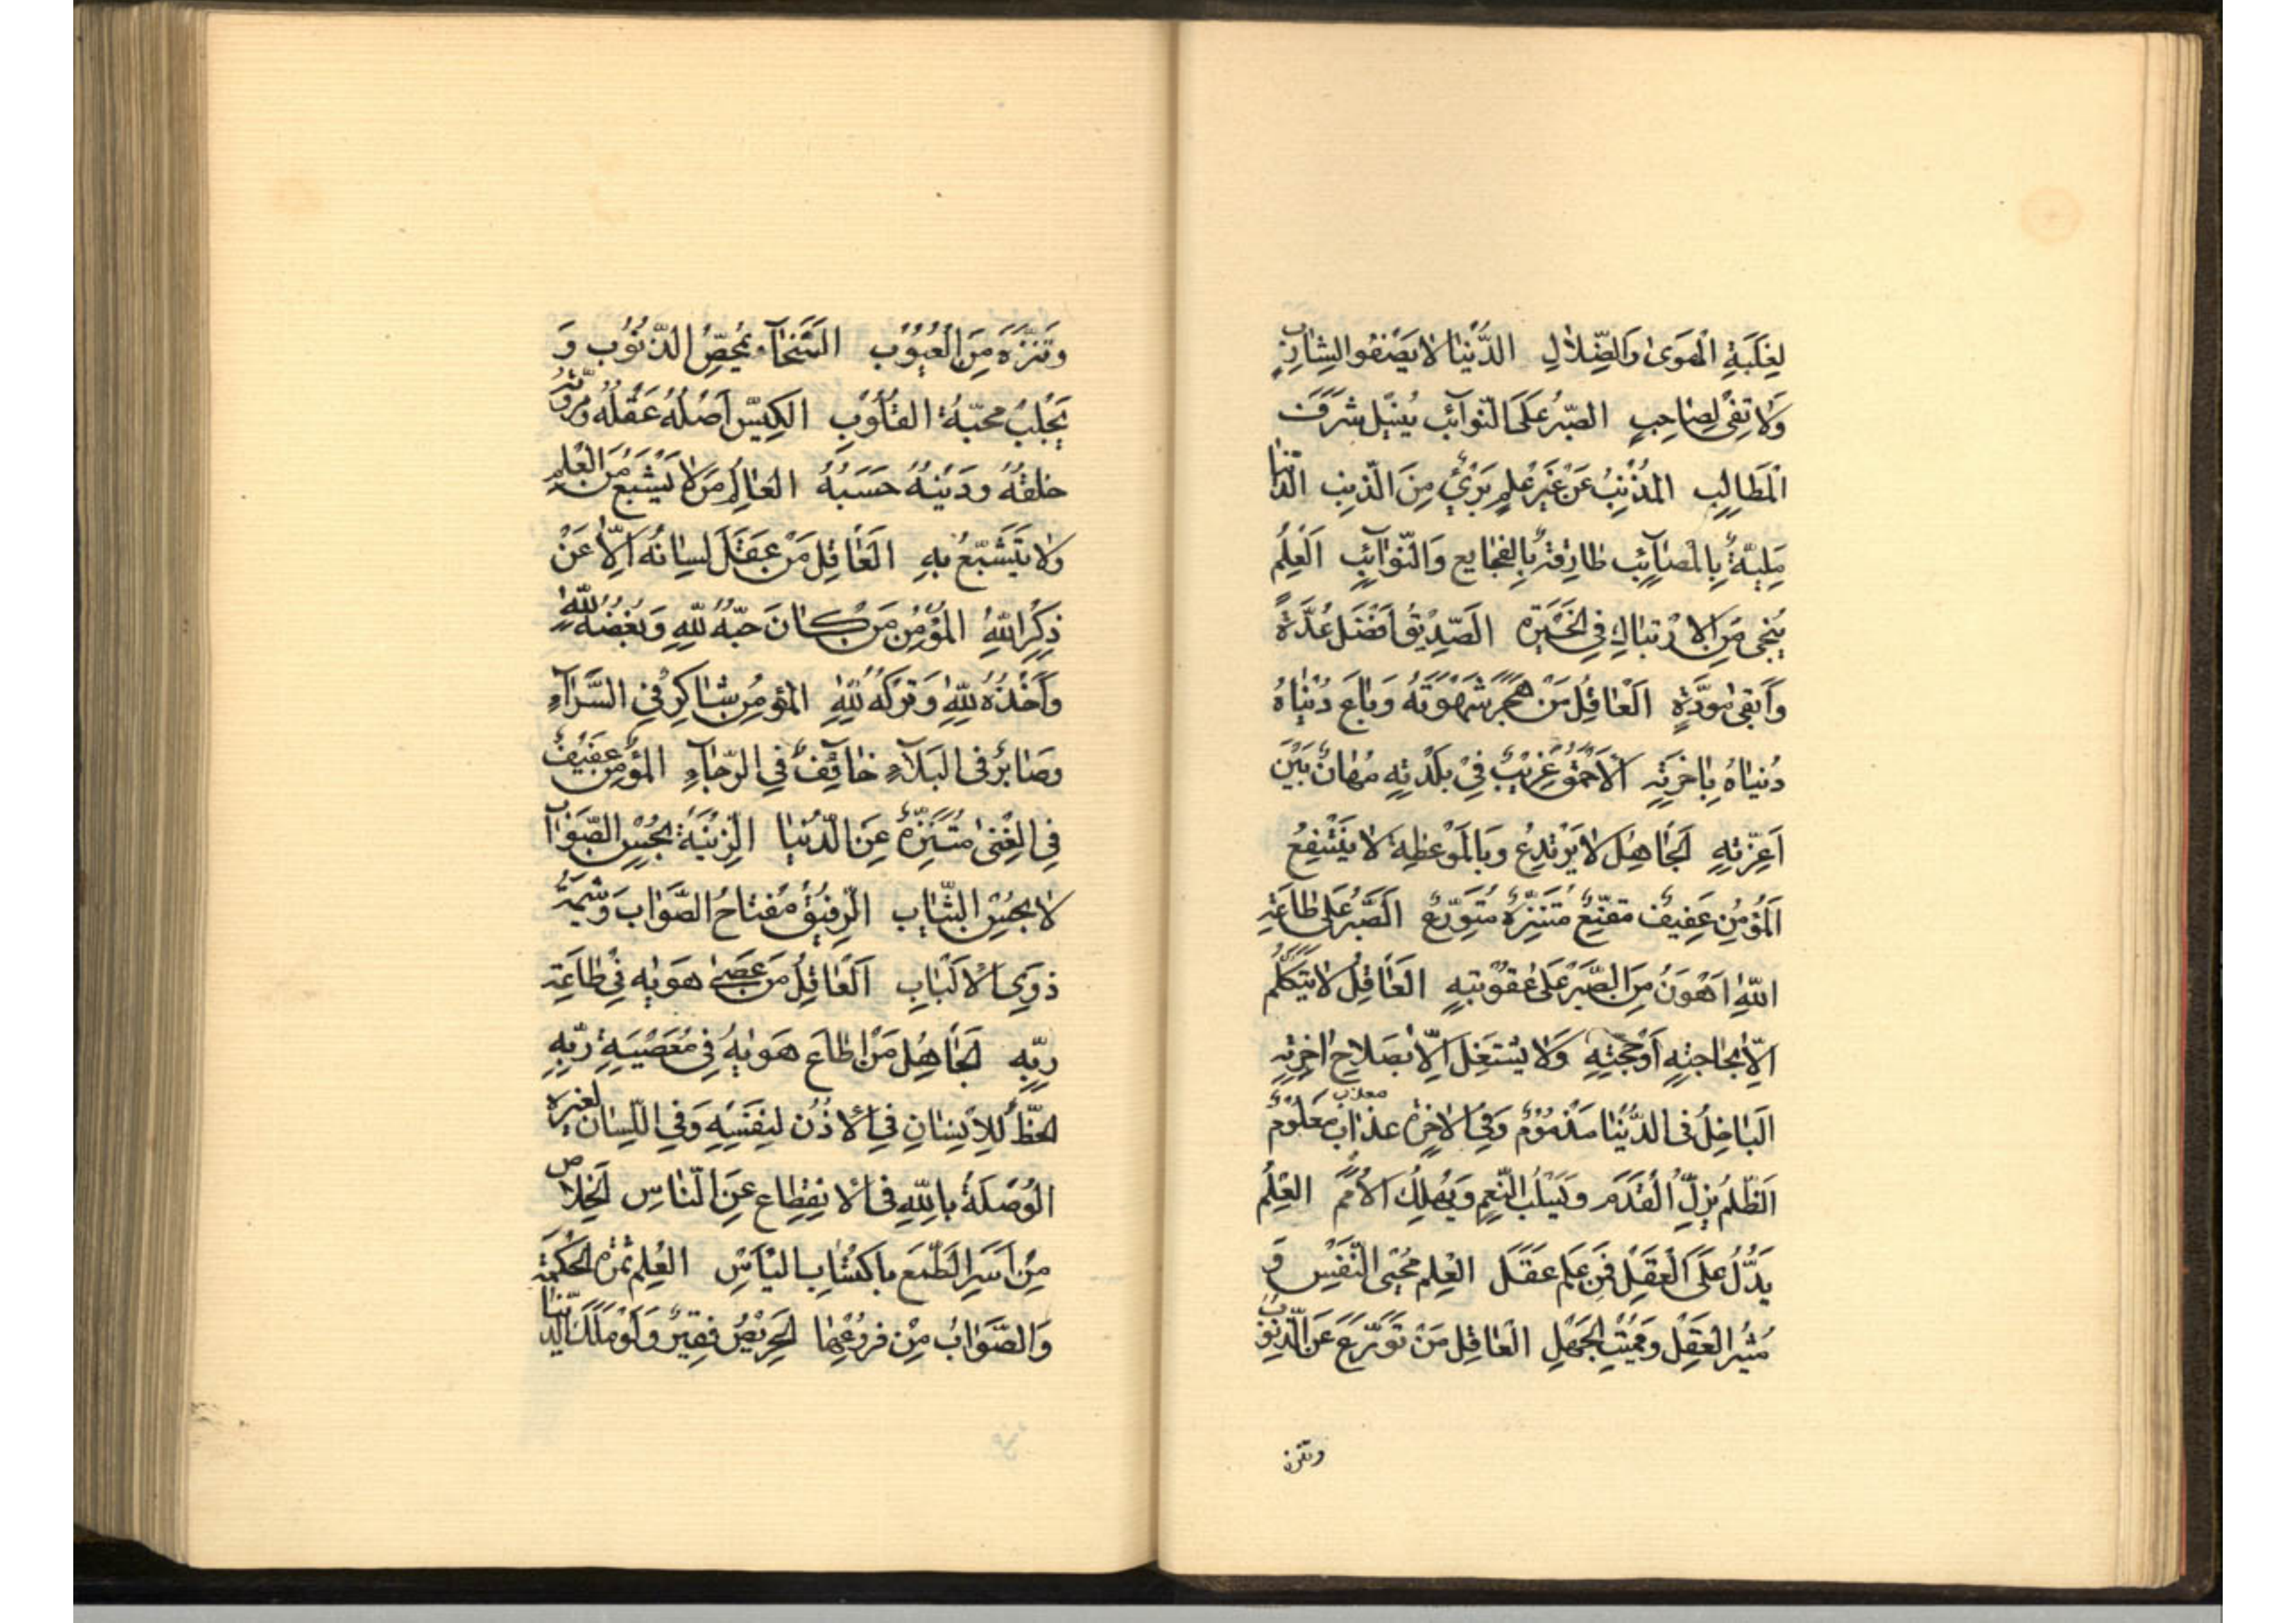 لِغَلَبَةِ الْهَوَىٰ وَالضَّلَالِ الدُّنْيَا لَا يَصْفُو لِشَارِبٍ
وَلَا تَفِي لِصَاحِبٍ الصَّبْرُ عَلَى النَّوَآئِبِ يُنِيلُ شَرَفَ
الْمَطَالِبِ الْمُذْنِبُ عَنْ غَيْرِ عِلْمٍ بَرِئٌ مِنَ الذَّنْبِ الدُّنْيَا
مَلِيَّةٌ بِالْمَصَآئِبِ طَارِقَةٌ بِالْفَجَايِعِ وَالنَّوَآئِبِ الْعِلْمُ
يُنْجِي مِنَ الْاِرْتِبَاكِ فِي الْحَيْرَةِ الصَّدِيقُ اَفْضَلُ عُدَّةٍ
وَاَبْقَى مَوَدَّةٍ الْعَاقِلُ مَنْ هَجَرَ شَهْوَتَهُ وَبَاعَ دُنْيَاهُ
دُنْيَاهُ بِاٰخِرَتِهِ الْاَحْمَقُ غَرِيبٌ فِي بَلْدَتِهِ مُهَانٌ بَيْنَ
اَعِزَّتِهِ الْجَاهِلُ لَا يَرْتَدِعُ وَبِالْمَوْعِظَةِ لَا يَنْتَفِعُ
الْمُؤْمِنُ عَفِيفٌ مُقْتَنِعٌ مُتَنَزِّهٌ مُتَوَرِّعٌ الصَّبْرُ عَلَى طَاعَةِ
اللّٰهِ اَهْوَنُ مِنَ الصَّبْرِ عَلَى عُقُوبَتِهِ الْعَاقِلُ لَا يَتَكَلَّمُ
اِلَّا بِحَاجَتِهِ اَوْ حُجَّتِهِ وَلَا يَشْتَغِلُ اِلَّا بِصَلَاحِ اٰخِرَتِهِ
الْبَاخِلُ فِي الدُّنْيَا مَذْمُومٌ وَفِي الْاٰخِرَةِ عَذَابٌ مَعْلُومٌ
معذب
الظُّلْمُ يُزِلُّ الْقَدَمَ وَيَسْلُبُ النِّعَمَ وَيُهْلِكُ الْاُمَمَ الْعِلْمُ
يَدُلُّ عَلَى الْعَقْلِ فَمَنْ عَلِمَ عَقَلَ الْعِلْمُ مُحْيِي النَّفْسِ وَ
مُنِيرُ الْعَقْلِ وَمُمِيتُ الْجَهْلِ الْعَاقِلُ مَنْ تَوَرَّعَ عَنِ الذُّنُوبِ
وتنزه
وَتَنَزَّهَ مِنَ الْعُيُوبِ السَّخَآءُ يُمَحِّصُ الذُّنُوبَ وَ
يَجْلِبُ مَحَبَّةَ الْقُلُوبِ الْكَيِّسُ اَصْلُهُ عَقْلُهُ وَمُرُوَّتُهُ
خُلْقُهُ وَدِينُهُ حَسَبُهُ الْعَالِمُ مَنْ لَا يَشْبَعُ مِنَ الْعِلْمِ
وَلَا يَتَشَبَّعُ بِهِ الْعَاقِلُ مَنْ عَقَلَ لِسَانَهُ اِلَّا عَنْ
ذِكْرِ اللّٰهِ الْمُؤْمِنُ مَنْ كَانَ حُبُّهُ لِلّٰهِ وَبُغْضُهُ لِلّٰهِ
وَاَخْذُهُ لِلّٰهِ وَتَرْكُهُ لِلّٰهِ الْمُؤْمِنُ شَاكِرٌ فِي السَّرَّآءِ
وَصَابِرٌ فِي الْبَلَآءِ خَآئِفٌ فِي الرَّخَآءِ الْمُؤْمِنُ عَفِيفٌ
فِي الْغِنَى مُتَنَزِّهٌ عَنِ الدُّنْيَا الزِّينَةُ بِحُسْنِ الصَّوَابِ
لَا بِحُسْنِ الثِّيَابِ الرِّفْقُ مِفْتَاحُ الصَّوَابِ وَشِيمَةُ
ذَوِي الْاَلْبَابِ الْعَاقِلُ مَنْ عَصٰى هَوٰيهُ فِي طَاعَةِ
رَبِّهِ الْجَاهِلُ مَنْ اَطَاعَ هَوٰيهُ فِي مَعْصِيَةِ رَبِّهِ
الْحَظُّ لِلْاِنْسَانِ فِي الْاُذُنِ لِنَفْسِهِ وَفِي اللِّسَانِ لِغَيْرِهِ
الْوُصْلَةُ بِاللّٰهِ فِي الْاِنْقِطَاعِ عَنِ النَّاسِ الْخَلَاصُ
مِنْ اَسْرِ الطَّمَعِ بِاكْتِسَابِ الْيَأْسِ الْعِلْمُ ثَمَرَةُ الْحِكْمَةِ
وَالصَّوَابُ مِنْ فُرُوعِهَا الْحَرِيصُ فَقِيرٌ وَلَوْ مَلَكَ الدُّنْيَا